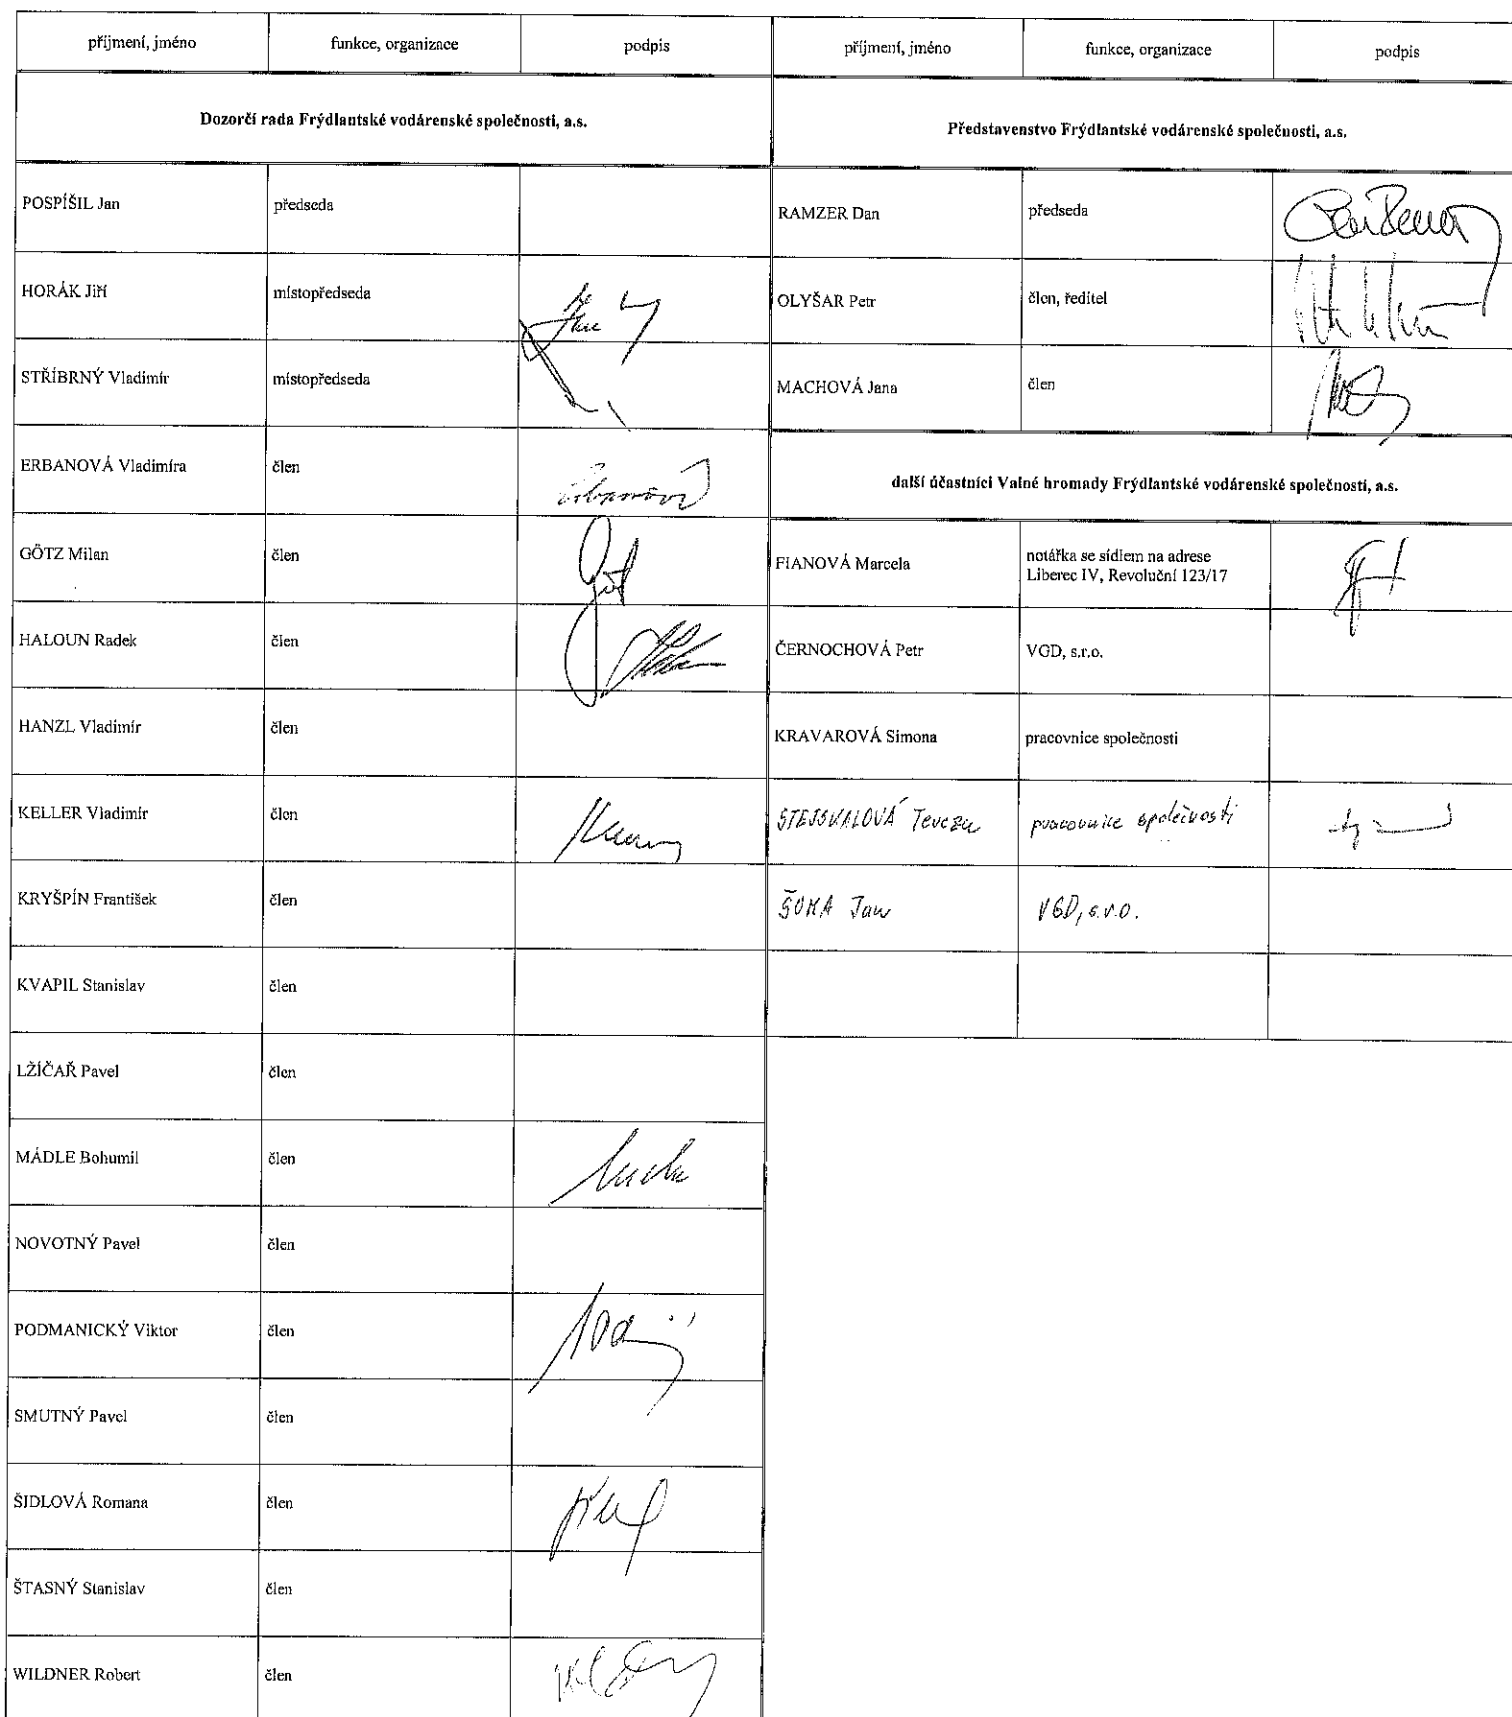 příjmení, jméno funkce, organizace podpis
Dozorčí rada Frýdlantské vodárenské společnosti, a.s.
POSPÍŠIL Jan předseda
HORÁK Jiří místopředseda
STŘÍBRNÝ Vladimír místopředseda
ERBANOVÁ Vladimíra člen
GÖTZ Milan člen
HALOUN Radek člen
HANZL Vladimír člen
KELLER Vladimír člen
KRYŠPÍN František člen
KVAPIL Stanislav člen
LŽÍČAŘ Pavel člen
MÁDLE Bohumil člen
NOVOTNÝ Pavel člen
PODMANICKÝ Viktor člen
SMUTNÝ Pavel člen
ŠIDLOVÁ Romana člen
ŠTASNÝ Stanislav člen
WILDNER Robert člen
příjmení, jméno funkce, organizace podpis
Představenstvo Frýdlantské vodárenské společnosti, a.s.
RAMZER Dan předseda
OLYŠAR Petr člen, ředitel
MACHOVÁ Jana člen
další účastníci Valné hromady Frýdlantské vodárenské společnosti, a.s.
FIANOVÁ Marcela notářka se sídlem na adrese
Liberec IV, Revoluční 123/17
ČERNOCHOVÁ Petr VGD, s.r.o.
KRAVAROVÁ Simona pracovnice společnosti
STEJSKALOVÁ Tereza pracovnice společnosti
ŠUMA Jan VGD, s.r.o.